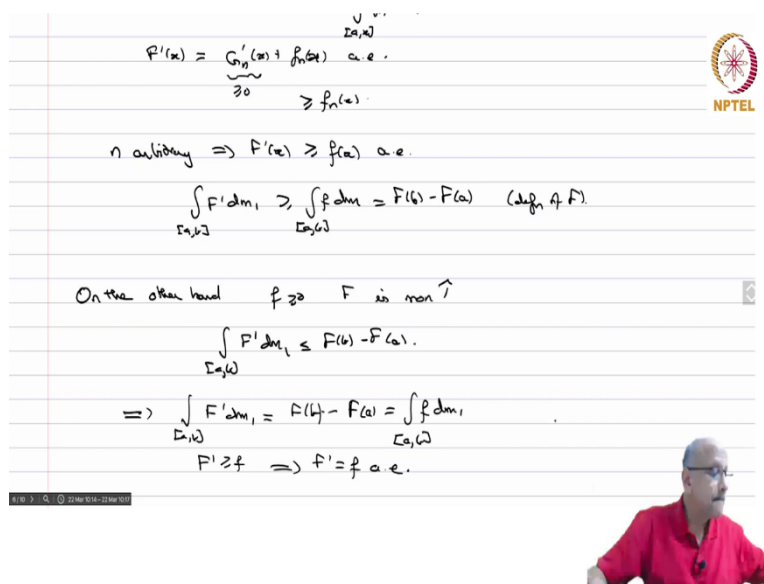 [a,x]
F'(x) = G_n'(x) + f_n(x) a.e.
≥0
≥ f_n(x).
NPTEL
n arbitrary => F'(x) ≥ f(x) a.e.
∫_[a,b] F' dm₁ ≥ ∫_[a,b] f dm = F(b) - F(a) (defn of F).
On the other hand f ≥ 0 F is non ↑
∫_[a,b] F' dm₁ ≤ F(b) - F(a).
=> ∫_[a,b] F' dm₁ = F(b) - F(a) = ∫_[a,b] f dm₁
F' ≥ f => F' = f a.e.
6/10 22 Mar 10:14 - 22 Mar 10:17